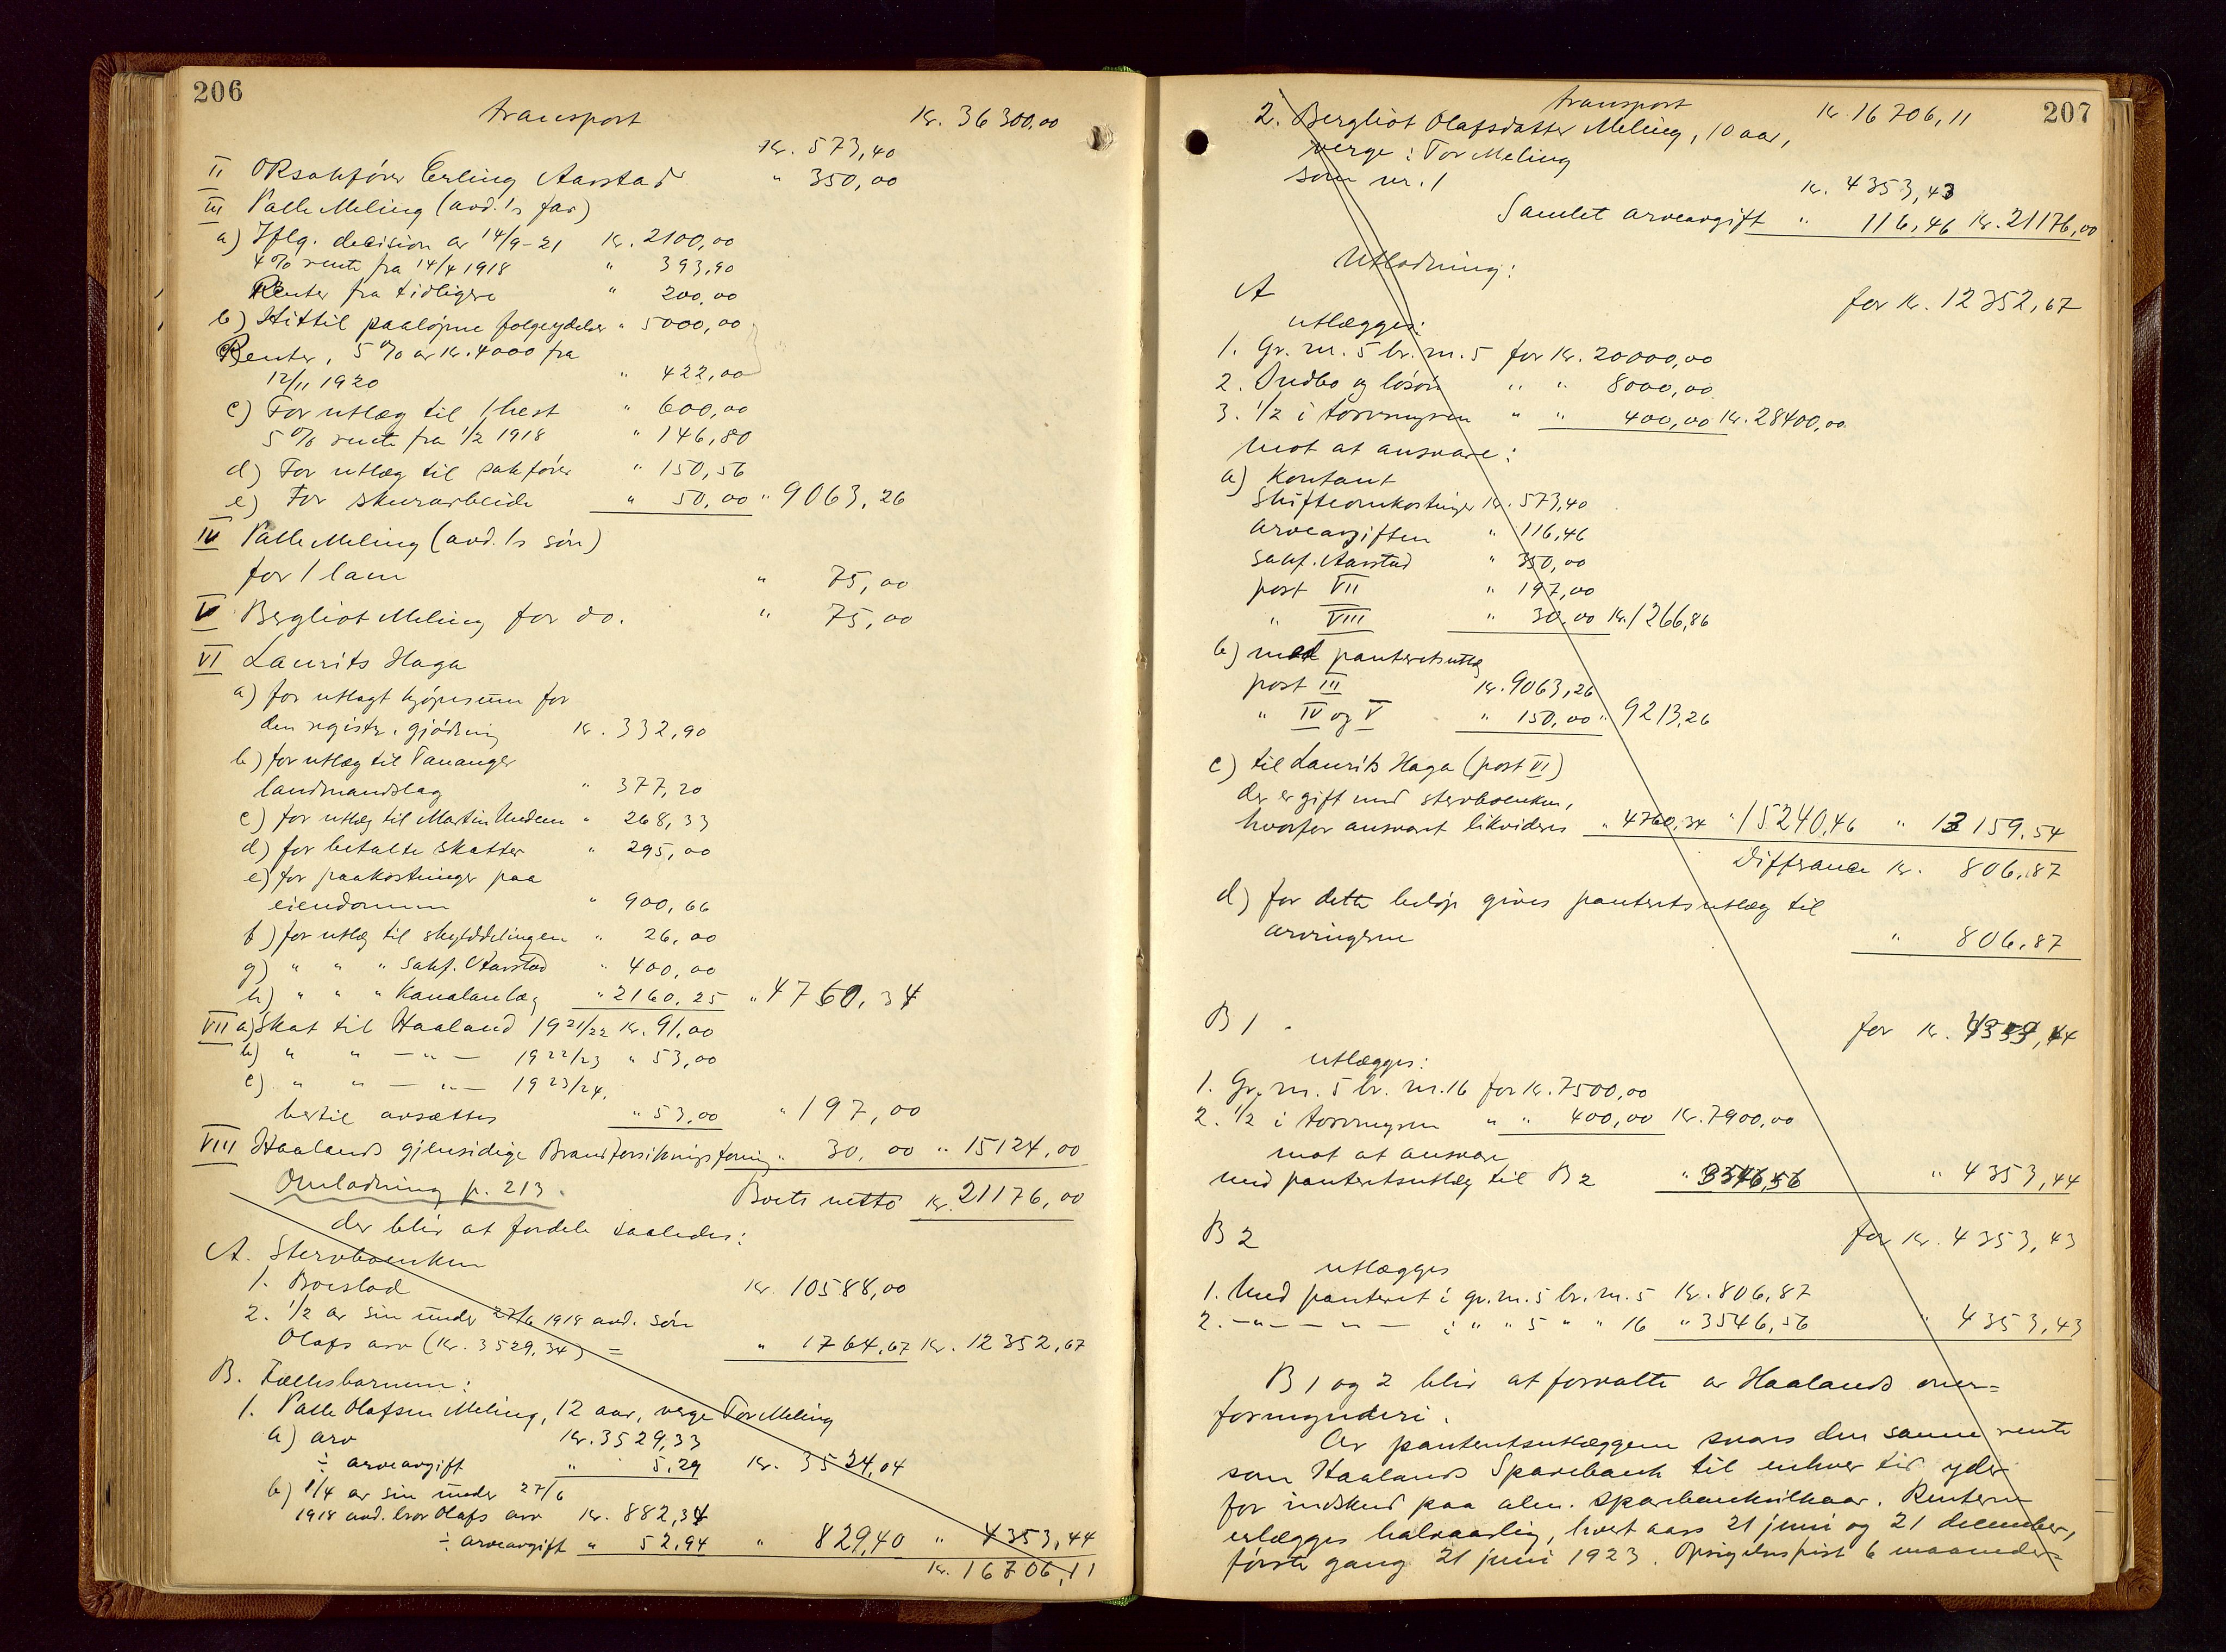 206
transport Kr. 36300,00
Kr. 573,40
II ORsakfører Erling Aarstad " 350,00
III Palle Meling (avd.'s far)
a) Iflg. decision av 14/9-21 Kr. 2100,00
4% rente fra 14/4 1918 " 393,90
Renter fra tidligere " 200,00
b) Hittil paaløpne folgeydelser " 5000,00
Renter, 5% av Kr. 4000 fra
12/11 1920 " 422,00
c) For utlæg til 1 hest " 600,00
5% rente fra 1/2 1918 " 146,80
d) For utlæg til sakfører " 150,56
e) For skurarbeide " 50,00 " 9063,26
IV Palle Meling (avd.'s søn)
for 1 lam " 75,00
V Bergliot Meling for do. " 75,00
VI Laurits Haga
a) for utlagt kjøpesum for
den registr. gjødning Kr. 332,90
b) for utlæg til Tananger
landmandslag " 377,20
c) for utlæg til Martin " 268,33
d) for betalte skatter " 295,00
e) for paakostninger paa
eiendommen " 900,66
f) for utlæg til skylddelingen " 26,00
g) " " " sakf. Aarstad " 400,00
h) " " " Kanalanlæg " 2160,25 " 4760,34
VII a) Skat til Haaland 1921/22 Kr. 91,00
b) " " — " — 1922/23 " 53,00
c) " " — " — 1923/24,
hertil avsættes " 53,00 " 197,00
VIII Haalands gjensidige Brandforsikringsforening " 30,00 " 15124,00
Omlodning p. 213. Boets netto Kr. 21176,00
der blir at fordele saaledes:
A. Stervboenken
1. Boeslod Kr. 10588,00
2. 1/2 av sin under 27/6 1918 avd. søn
Olafs arv (Kr. 3529,34) = " 1764,67 Kr. 12352,67
B. Fællesbarnene:
1. Palle Olafsen Meling, 12 aar, verge Tor Meling
a) arv Kr. 3529,33
÷ arveavgift " 5,29 Kr. 3524,04
b) 1/4 av sin under 27/6
1918 avd. bror Olafs arv Kr. 882,34
÷ arveavgift " 52,94 " 829,40 " 4353,44
Kr. 16706,11
207
transport Kr. 16706,11
2. Bergliot Olafsdatter Meling, 10 aar,
verge: Tor Meling
som nr. 1 Kr. 4353,43
Samlet arveavgift " 116,46 Kr. 21176,00
Utlodning:
A for Kr. 12352,67
utlægges:
1. Gr. nr. 5 br. nr. 5 for Kr. 20000,00
2. Indbo og løsøre " " 8000,00
3. 1/2 i torvmyren " " 400,00 Kr. 28400,00
mot at ansvare:
a) Kontant
Skifteomkostninger Kr. 573,40
arveavgiften " 116,46
sakf. Aarstad " 350,00
post VII " 197,00
" VIII " 30,00 Kr. 1266,86
b) med panteretsutlæg
post III Kr. 9063,26
" IV og V " 150,00 " 9213,26
c) til Laurits Haga (post VI)
der er gift med stervboenken,
hvorfor ansvaret likvideres " 4760,34 " 15240,46 " 13159,54
Differance Kr. 806,87
d) for dette beløp gives panteretsutlæg til
arvingerne " 806,87
B 1 for Kr. 4353,44
utlægges:
1. Gr. nr. 5 br. nr. 16 for Kr. 7500,00
2. 1/2 i torvmyren " " 400,00 Kr. 7900,00
mot at ansvare
med panteretsutlæg til B 2 " 3546,56 " 4353,44
B 2 for Kr. 4353,43
utlægges
1. Med panteret i gr. nr. 5 br. nr. 5 Kr. 806,87
2. — " — — " — i " " 5 " " 16 " 3546,56 " 4353,43
B 1 og 2 blir at forvalte av Haalands over=
formynderi.
Av panteretsutlæggene svares den samme rente
som Haalands Sparebank til enhver tid yder
for indskud paa alm. sparebankvilkaar. Renterne
erlægges halvaarlig, hvert aars 21 juni og 21 december,
første gang 21 juni 1923. Opsigelsesfrist 6 maaneder=